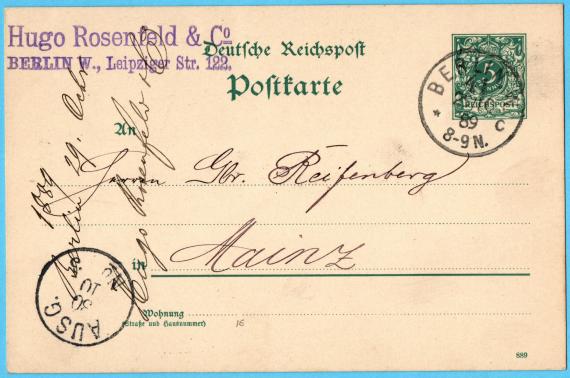 Hugo Rosenfeld & Co
BERLIN W., Leipziger Str. 122.
Deutsche Reichspost
Postkarte
5
REICHSPOST
BERLIN
89
8-9N.
* C
An
Herren Gbr. Reifenberg
in Mainz
Wohnung
(Straße und Hausnummer)
16
889
1889
Berlin 29. Octr
Hugo Rosenfeld & Co
AUSG.
30
10